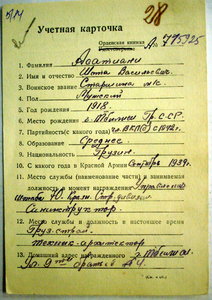 28
Учетная карточка
Орденская книжка
№ 795325
1. Фамилия Асатиани
2. Имя и отчество Шота Васильевич
3. Воинское звание Старшина м.с.
4. Пол Мужской
5. Год рождения 1918.
6. Место рождения г. Тбилиси Гр. ССР.
7. Партийность (с какого года) чл. ВКП(б) с 1942 г.
8. Образование Среднее
9. Национальность Грузин.
10. С какого года в Красной Армии Сентябрь 1939.
11. Место службы (наименование части) и занимаемая
должность в момент награждения
12. Место службы и должность в настоящее время
Груз-строй.
техник-архитектор
13. Домашний адрес награжденного г. Тбилиси.